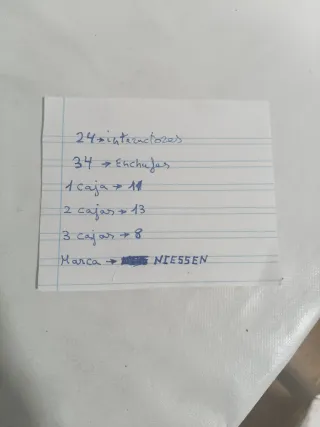 24 → intructores
34 → Enchufes
1 caja → 11
2 cajas → 13
3 cajas → 8
Marca → NIESSEN